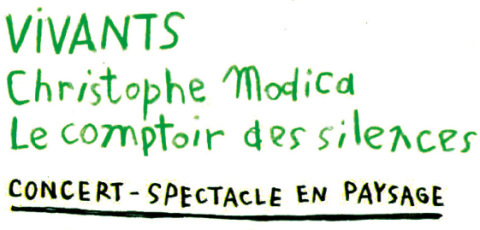 ViVANTS
Christophe Modica
Le comptoir des silences
CONCERT-SPECTACLE EN PAYSAGE